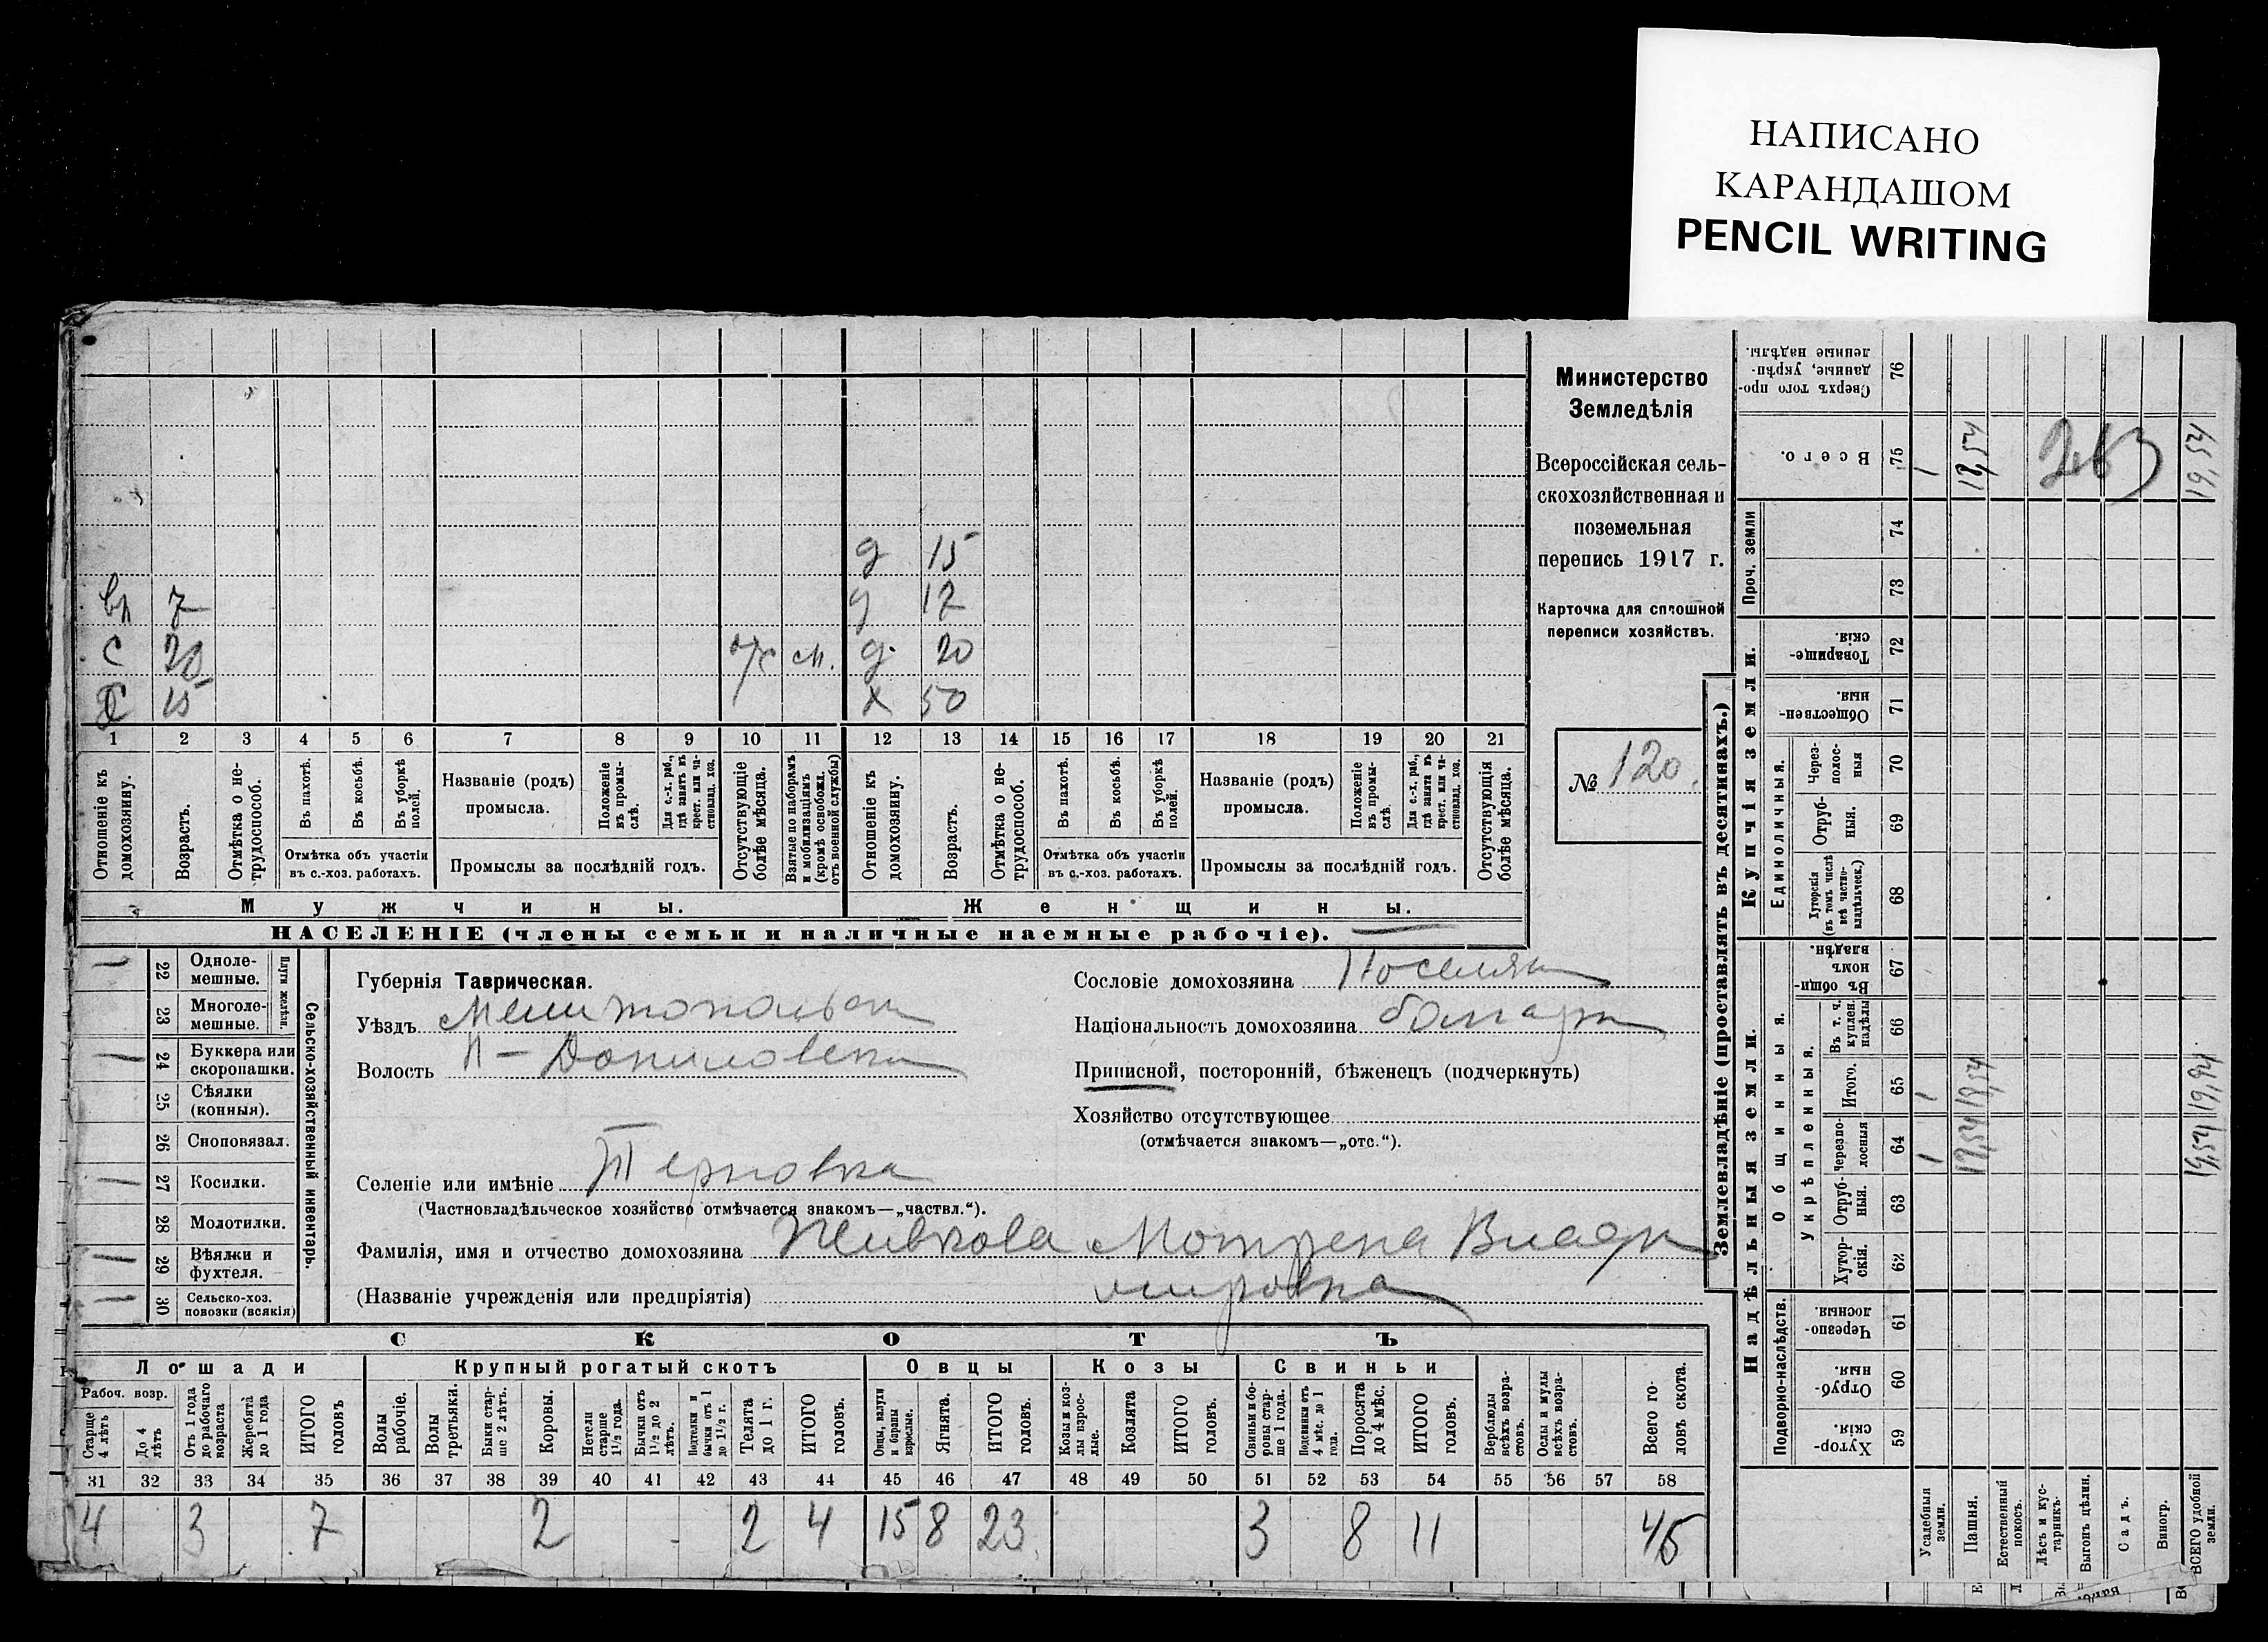 НАПИСАНО
КАРАНДАШОМ
PENCIL WRITING
Министерство
Земледѣлія
Всероссійская сель-
скохозяйственная и
поземельная
перепись 1917 г.
Карточка для сплошной
переписи хозяйствъ.
№ 120.
д 15
вн 7 д 12
с 20 м. д. 20
15 х 50
1 2 3 4 5 6 7 8 9 10 11 12 13 14 15 16 17 18 19 20 21
Отношеніе къ домохозяину.
Возрастъ.
Отмѣтка о не-трудоспособ.
Въ пахотѣ.
Въ косьбѣ.
Въ уборкѣ полей.
Отмѣтка объ участіи
въ с.-хоз. работахъ.
Названіе (родъ)
промысла.
Положеніе въ промы-слѣ.
Для с.-х. раб., гдѣ занятъ въ крест. или ча-стновлад. хоз.
Промыслы за послѣдній годъ.
Отсутствующіе болѣе мѣсяца.
Взятые по наборамъ и мобилизаціямъ (кромѣ освобожд. отъ военной службы)
Отношеніе къ домохозяину.
Возрастъ.
Отмѣтка о не-трудоспособ.
Въ пахотѣ.
Въ косьбѣ.
Въ уборкѣ полей.
Отмѣтка объ участіи
въ с.-хоз. работахъ.
Названіе (родъ)
промысла.
Положеніе въ промы-слѣ.
Для с.-х. раб., гдѣ занята въ крест. или ча-стновлад. хоз.
Промыслы за послѣдній годъ.
Отсутствующія болѣе мѣсяца.
Мужчины. Женщины.
НАСЕЛЕНІЕ (члены семьи и наличные наемные рабочіе).
22 Одноле-мешные.
23 Многоле-мешные.
Плуги желѣзн.
24 Буккера или скоропашки.
25 Сѣялки (конныя).
26 Сноповязал.
27 Косилки.
28 Молотилки.
29 Вѣялки и фухтеля.
30 Сельско-хоз. повозки (всякія)
Сельско-хозяйственный инвентарь.
Губернія Таврическая.
Уѣздъ Мелитопольск
Волость П-Даниловска
Селеніе или имѣніе Терновка
(Частновладѣльческое хозяйство отмѣчается знакомъ—„частвл.“).
Фамилія, имя и отчество домохозяина Живкова Мотрена Влади
мировна
(Названіе учрежденія или предпріятія)
Сословіе домохозяина Поселян
Національность домохозяина болгарк
Приписной, посторонній, бѣженецъ (подчеркнуть)
Хозяйство отсутствующее
(отмѣчается знакомъ—„отс.“).
СКОТЪ
Лошади Крупный рогатый скотъ Овцы Козы Свиньи
Рабоч. возр.
Старше 4 лѣтъ
До 4 лѣтъ
Отъ 1 года до рабочаго возраста
Жеребята до 1 года
ИТОГО головъ
Волы рабочіе.
Волы третьяки.
Быки стар-ше 2 лѣтъ.
Коровы.
Нетели старше 1½ года.
Бычки отъ 1½ до 2 лѣтъ.
Подтелки и бычки отъ 1 до 1½ г.
Телята до 1 г.
ИТОГО головъ.
Овцы, валухи и бараны взрослые.
Ягнята.
ИТОГО головъ.
Козы и коз-лы взрос-лые.
Козлята
ИТОГО головъ.
Свиньи и бо-ровы стар-ше 1 года.
Подсвинки отъ 4 мѣс. до 1 года.
Поросята до 4 мѣс.
ИТОГО головъ.
Верблюды всѣхъ возра-стовъ.
Ослы и мулы всѣхъ возра-стовъ.
Всего го-ловъ скота.
31 32 33 34 35 36 37 38 39 40 41 42 43 44 45 46 47 48 49 50 51 52 53 54 55 56 57 58
4 3 7 2 2 4 15 8 23 3 8 11 45
Землевладѣніе (проставлять въ десятинахъ.)
Купчія земли.
Надѣльныя земли.
Проч. земли
Единоличныя.
Общинныя.
Укрѣпленныя.
Подворно-наслѣдств.
Сверхъ того про-данные, укрѣп-ленные надѣлы. 76
Всего. 75
74
73
Товарище-скія. 72
Обществен-ныя. 71
Через-полос-ныя 70
Отруб-ныя. 69
Хуторскія (въ томъ числѣ всѣ частно-владѣльческ.) 68
Въ общи-номъ владѣн. 67
Въ т. ч. куплен. надѣлы 66
Итого. 65
Черезпо-лосныя 64
Отруб-ныя. 63
Хутор-скія. 62
Черезпо-лосныя 61
Отруб-ныя. 60
Хутор-скія 59
Усадебныя земли.
Пашня.
Естественный покосъ.
Лѣсъ и кус-тарникъ.
Выгонъ цѣлин.
Садъ.
Виногр.
ВСЕГО удобной земли.
263
19,54